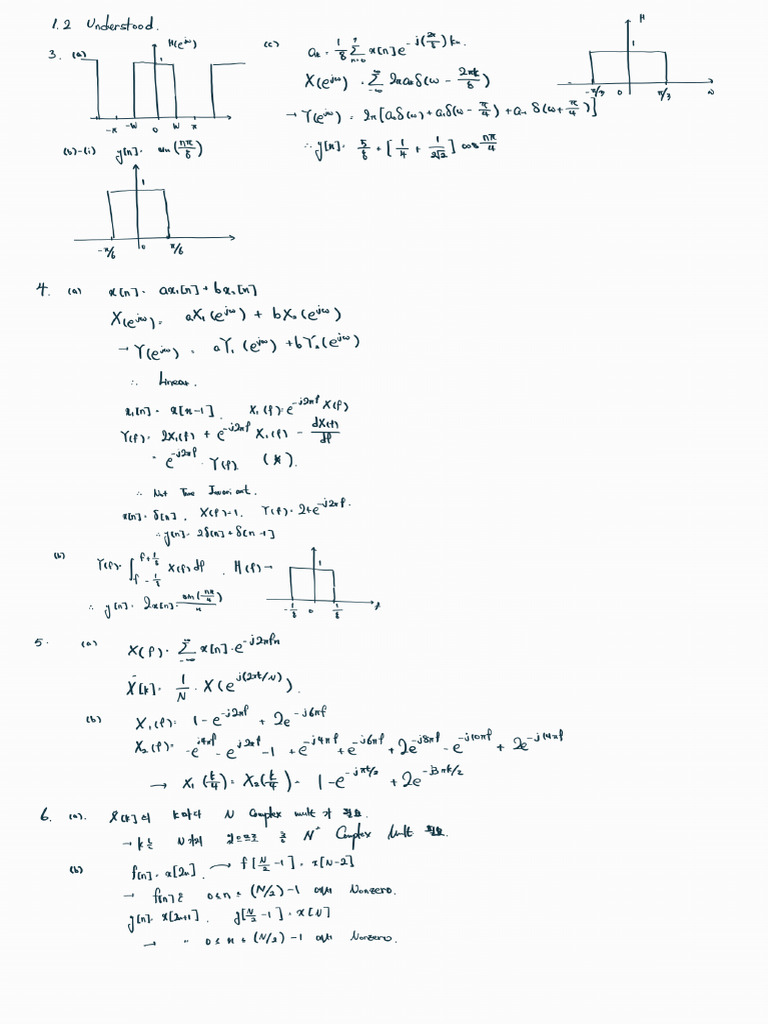 1.2 Understood.
3. (a)
H(e^{jω})
1
-π -W 0 W π
(b)-(i) y[n] = sin(nπ/8)
1
-π/6 0 π/6
(c) a_k = 1/8 Σ_{n=0}^{7} x[n] e^{-j(2π/8)kn}
X(e^{jω}) = Σ_{-∞}^{∞} 2πa_kδ(ω - 2πk/8)
→ Y(e^{jω}) = 2π[a_0δ(ω) + a_1δ(ω - π/4) + a_{-1}δ(ω + π/4)]
∴ y[n] = 5/8 + [1/4 + 1/2√2] cos nπ/4
H
1
-π/3 0 π/3 ω
4. (a) x[n] = ax_1[n] + bx_2[n]
X(e^{jω}) = aX_1(e^{jω}) + bX_2(e^{jω})
→ Y(e^{jω}) = aY_1(e^{jω}) + bY_2(e^{jω})
∴ Linear.
x_1[n] = x[n-1], X_1(f) = e^{-j2πf} X(f)
Y(f) = 2X_1(f) + e^{-j2πf} X_1(f) - dX(f)/df
= e^{-j2πf} · Y(f) (X).
∴ Not Time Invariant.
x[n] = δ[n], X(f)=1, Y(f) = 2+e^{-j2πf}.
∴ y[n] = 2δ[n] + δ[n-1]
(b) Y(f) = ∫_{f-1/8}^{f+1/8} X(f) df, H(f) →
1
-1/8 0 1/8 f
∴ y[n] = 2x[n] · sin(nπ/4)/n
5. (a) X(f) = Σ_{-∞}^{∞} x[n] · e^{-j2πfn}
X̃[k] = 1/N · X(e^{j(2πk/N)}).
(b) X_1(f) = 1 - e^{-j2πf} + 2e^{-j6πf}
X_2(f) = -e^{j4πf} - e^{j2πf} - 1 + e^{-j4πf} + e^{-j6πf} + 2e^{-j8πf} - e^{-j10πf} + 2e^{-j14πf}
→ X_1(k/4) = X_2(k/4) = 1 - e^{-jπk/2} + 2e^{-j3πk/2}
6. (a). X[k]의 k마다 N Complex mult가 필요.
→ k는 N개가 있으므로 총 N² Complex Mult 필요.
(b) f[n] = x[2n]. → f[N/2 - 1] = x[N-2]
→ f[n]은 0≤n≤(N/2)-1 에서 Nonzero.
g[n] = x[2n+1]. g[N/2 - 1] = x[N]
→ " 0≤n≤(N/2)-1 에서 Nonzero.